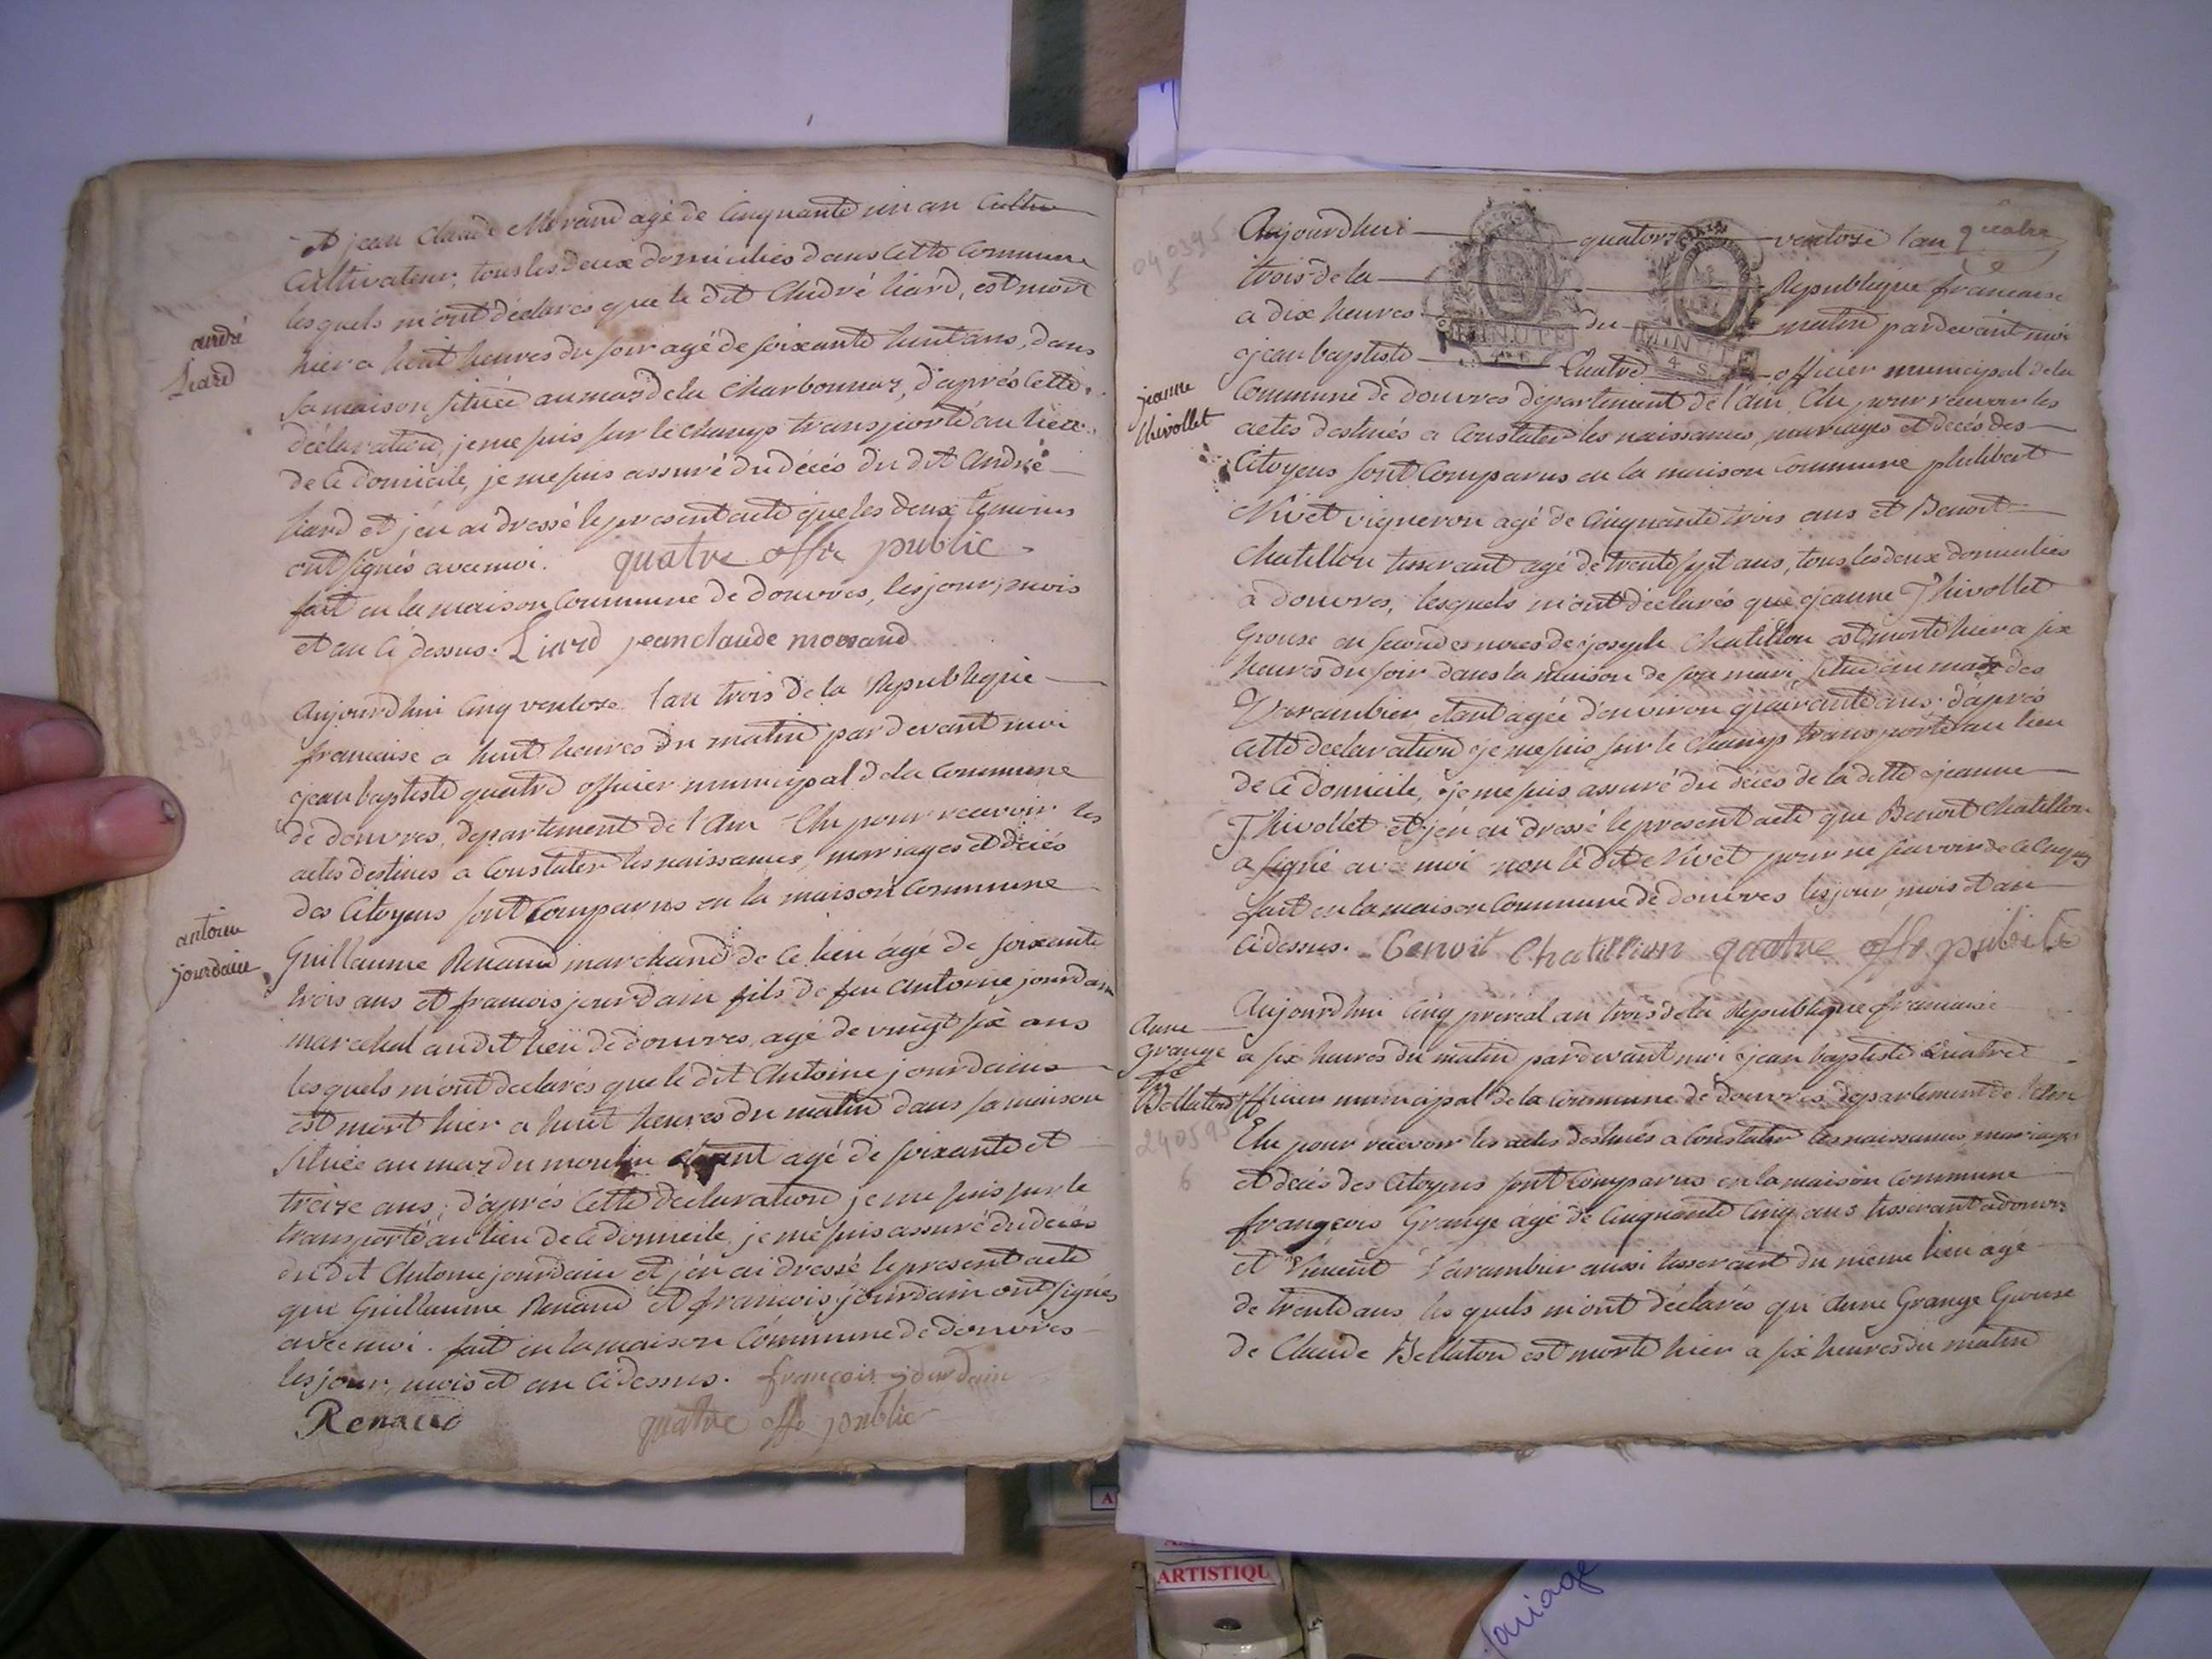 et jean Claude Morand agé de Cinquante un an Cultiv
Cultivateur, tous les deux domiciliés dans Cette Commune
lesquels m'ont déclarés que le dit André liard, est mort
hier a huit heures du soir agé de soixante huit ans, dans
sa maison située au mas de la Charbonnas, d'aprés Cette
déclaration, je me suis sur le champs transporté au lieu
de Ce domicile, je me suis assuré du décés du dit André
liard et j'en ai dressé le present acte que les deux temoins
ont signés avec moi. quatre offr public
fait en la maison Commune de douvres, les jour, mois
et an Ci dessus. Liard jean claude morand
andré
Liard
Aujourd'hui Cinq ventose l'an trois de la Republique
francaise a huit heures du matin pardevant moi
jean baptiste quatre officier municipal de la Commune
de douvres, departement de l'Ain Elu pour recevoir les
actes destines a Constater les naissances, mariages et déces
des Citoyens sont Comparus en la maison Commune
Guillaume Renaud marchand de Ce lieu âgé de soixante
trois ans et francois jourdain fils de feu Antoine jourdain
marechal audit lieu de douvres, agé de vingt six ans
lesquels m'ont declarés que le dit Antoine jourdain
est mort hier a huit heures du matin dans sa maison
située au mas du moulin etant agé de soixante et
treize ans, d'aprés Cette declaration je me suis sur le
transporté au lieu de Ce domicile, je me suis assuré du decés
du dit Antoine jourdain et j'en ai dressé le present acte
que Guillaume Renaud et francois jourdain ont signés
avec moi. fait en la maison Commune de douvres
les jour, mois et an Cidessus. françois jourdain
Renaud quatre offr public
antoine
jourdain
quatre
Aujourdhui quatorze ventose l'an
trois de la Republique francaise
a dix heures du matin pardevant moi
jean baptiste Quatre officier municipal de la
Commune de douvres département de l'ain Elu pour recevoir les
actes destinés a Constater les naissances, mariages et décés des
Citoyens sont Comparus en la maison Commune philibert
Nivet vigneron agé de Cinquante trois ans et Benoit
Chatillon tisserant agé de trente sept ans, tous les deux domiciliés
a douvres, lesquels m'ont déclarés que jeanne Thivollet
Epouse en secondes noces de joseph Chatillon est morte hier a six
heures du soir dans la maison de son mari, située au mas des
Varambier etant agée d'environ quarante ans. d'aprés
Cette declaration je me suis sur le Champs transporté au lieu
de Ce domicile, je me suis assuré du déces de la ditte jeanne
Thivollet et j'en ai dressé le present acte que Benoit Chatillon
a signé avec moi non le dit Nivet pour ne sçavoir de Ce Enquis
fait en la maison Commune de douvres les jour, mois et an
Cidessus. Benoit Chatillion quatre offr publice
jeanne
thivollet
040395
5
Aujourdhui Cinq prereal an trois de la Republique francaise
a six heures du matin pardevant moi jean baptiste Quatre
officier municipal de la Commune de douvres departement de l'Ain
Elu pour recevoir les actes destinés a Constater les naissances, mariages
et décés des Citoyens sont Comparus en la maison Commune
françois Grange agé de Cinquante Cinq ans tisserant a douvres
et Vincent Varambier aussi tisserant du même lieu agé
de trente ans lesquels m'ont déclarés qu'Anne Grange Epouse
de Claude Bellaton est morte hier a six heures du matin
Anne
Grange
fe
Bellaton
240595
6
ARTISTIQU
mariage